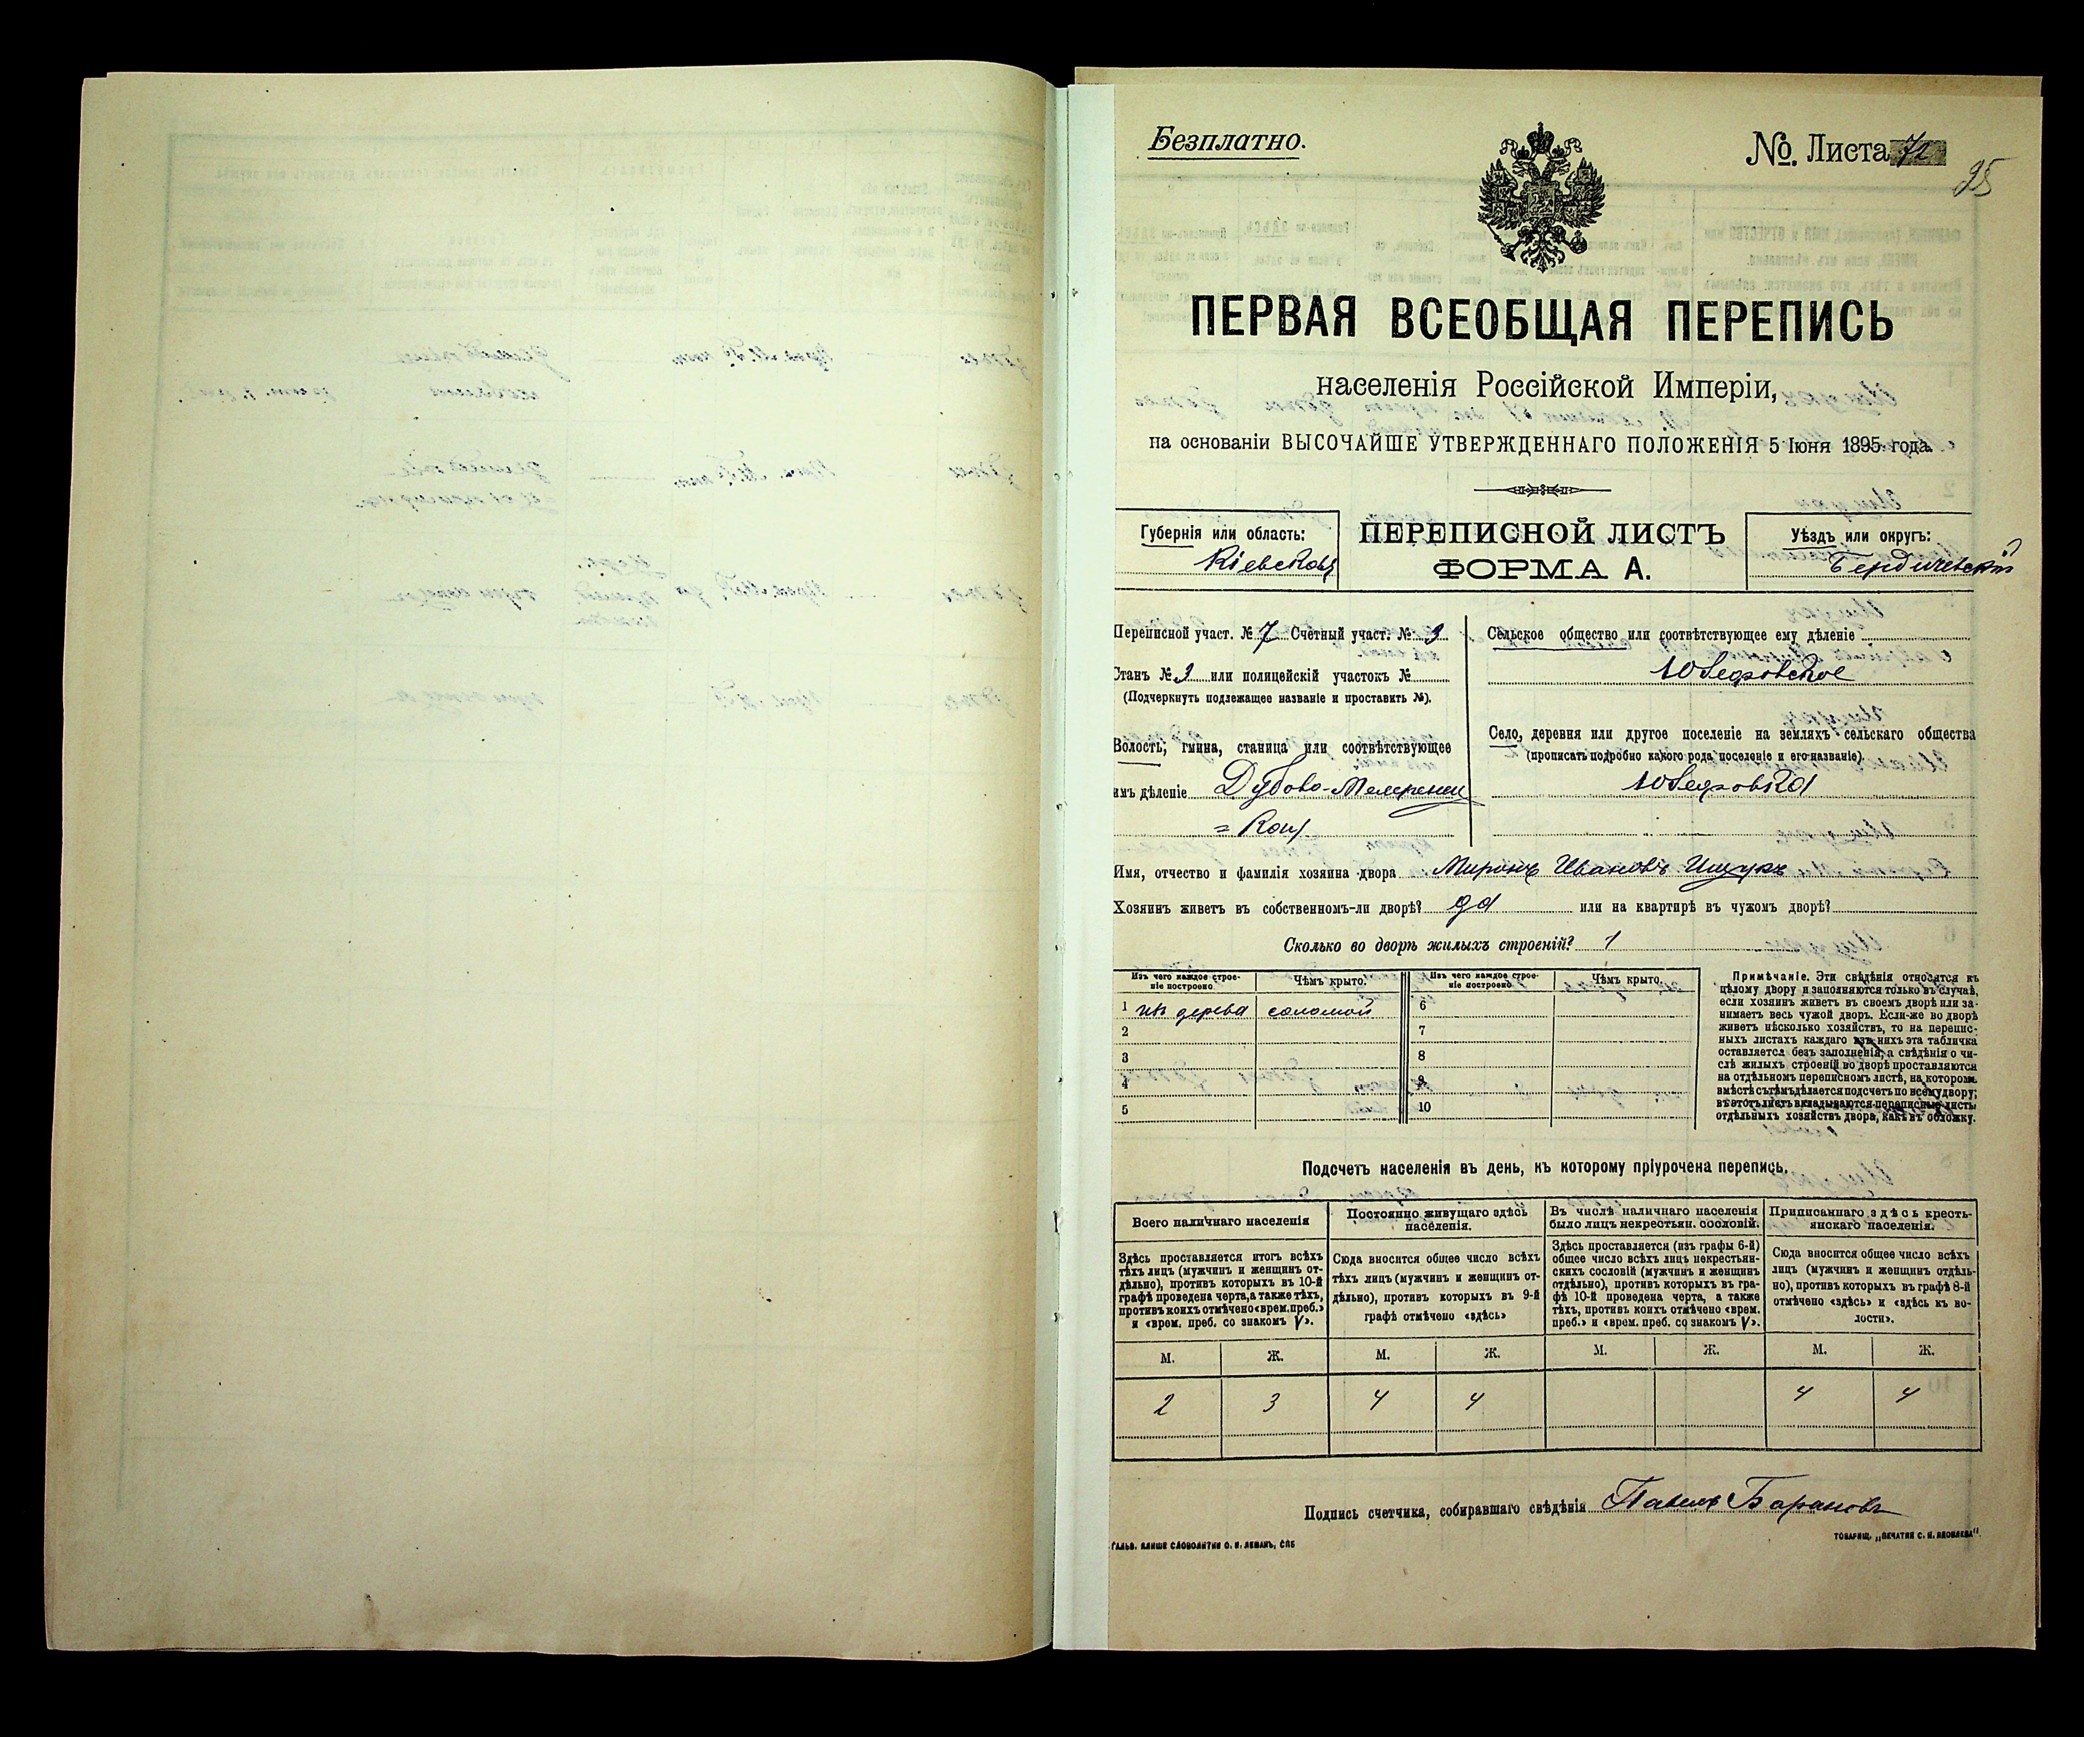 Безплатно.
№. Листа 72
95
ПЕРВАЯ ВСЕОБЩАЯ ПЕРЕПИСЬ
населенія Россійской Имперіи,
на основаніи ВЫСОЧАЙШЕ УТВЕРЖДЕННАГО ПОЛОЖЕНІЯ 5 Іюня 1895 года.
Губернія или область:
Кіевская
ПЕРЕПИСНОЙ ЛИСТЪ
ФОРМА А.
Уѣздъ или округъ:
Бердичевскій
Переписной участ. № 7 Счетный участ. № 3
Станъ № 3 или полицейскій участокъ №
(Подчеркнуть подлежащее названіе и проставить №).
Волость, гмина, станица или соотвѣтствующее
имъ дѣленіе Дубово-Махарин
=кая
Сельское общество или соотвѣтствующее ему дѣленіе
Село, деревня или другое поселеніе на земляхъ сельскаго общества
(прописать подробно какого рода поселеніе и его названіе).
Имя, отчество и фамилія хозяина двора Миронъ Ивановъ Ищукъ
Хозяинъ живетъ въ собственномъ-ли дворѣ? да или на квартирѣ въ чужомъ дворѣ?
Сколько во дворѣ жилыхъ строеній? 1
Изъ чего каждое строе-
ніе построено.
Чѣмъ крыто.
Изъ чего каждое строе-
ніе построено
Чѣмъ крыто.
1 изъ дерева соломой
2
3
4
5
6
7
8
9
10
Примѣчаніе. Эти свѣдѣнія относятся къ
цѣлому двору и заполняются только въ случаѣ,
если хозяинъ живетъ въ своемъ дворѣ или за-
нимаетъ весь чужой дворъ. Если-же во дворѣ
живетъ нѣсколько хозяйствъ, то на перепис-
ныхъ листахъ каждаго изъ нихъ эта табличка
оставляется безъ заполненія, а свѣдѣнія о чи-
слѣ жилыхъ строеній во дворѣ проставляются
на отдѣльномъ переписномъ листѣ, на которомъ
вмѣстѣ съ тѣмъ дѣлается подсчетъ по всему двору;
въ этотъ листъ вкладываются переписные листы
отдѣльныхъ хозяйствъ двора, какъ въ обложку.
Подсчетъ населенія въ день, къ которому пріурочена перепись.
Всего наличнаго населенія
Здѣсь проставляется итогъ всѣхъ
тѣхъ лицъ (мужчинъ и женщинъ от-
дѣльно), противъ которыхъ въ 10-й
графѣ проведена черта, а также тѣхъ,
противъ коихъ отмѣчено «врем. преб.»
и «врем. преб. со знакомъ V».
Постоянно живущаго здѣсь
населенія.
Сюда вносится общее число всѣхъ
тѣхъ лицъ (мужчинъ и женщинъ от-
дѣльно), противъ которыхъ въ 9-й
графѣ отмѣчено «здѣсь»
Въ числѣ наличнаго населенія
было лицъ некрестьян. сословій.
Здѣсь проставляется (изъ графы 6-й)
общее число всѣхъ лицъ некрестьян-
скихъ сословій (мужчинъ и женщинъ
отдѣльно), противъ которыхъ въ гра-
фѣ 10-й проведена черта, а также
тѣхъ, противъ коихъ отмѣчено «врем.
преб.» и «врем. преб. со знакомъ V».
Приписаннаго здѣсь кресть-
янскаго населенія.
Сюда вносится общее число всѣхъ
лицъ (мужчинъ и женщинъ отдѣль-
но), противъ которыхъ въ графѣ 8-й
отмѣчено «здѣсь» и «здѣсь къ во-
лости».
М. Ж. М. Ж. М. Ж. М. Ж.
2 3 4 4 4 4
Подпись счетчика, собиравшаго свѣдѣнія Павелъ Барановъ
Гальв. клише словолитни О. И. Леманъ, СПБ
Товарищ. „Печатня С. П. Яковлева“.